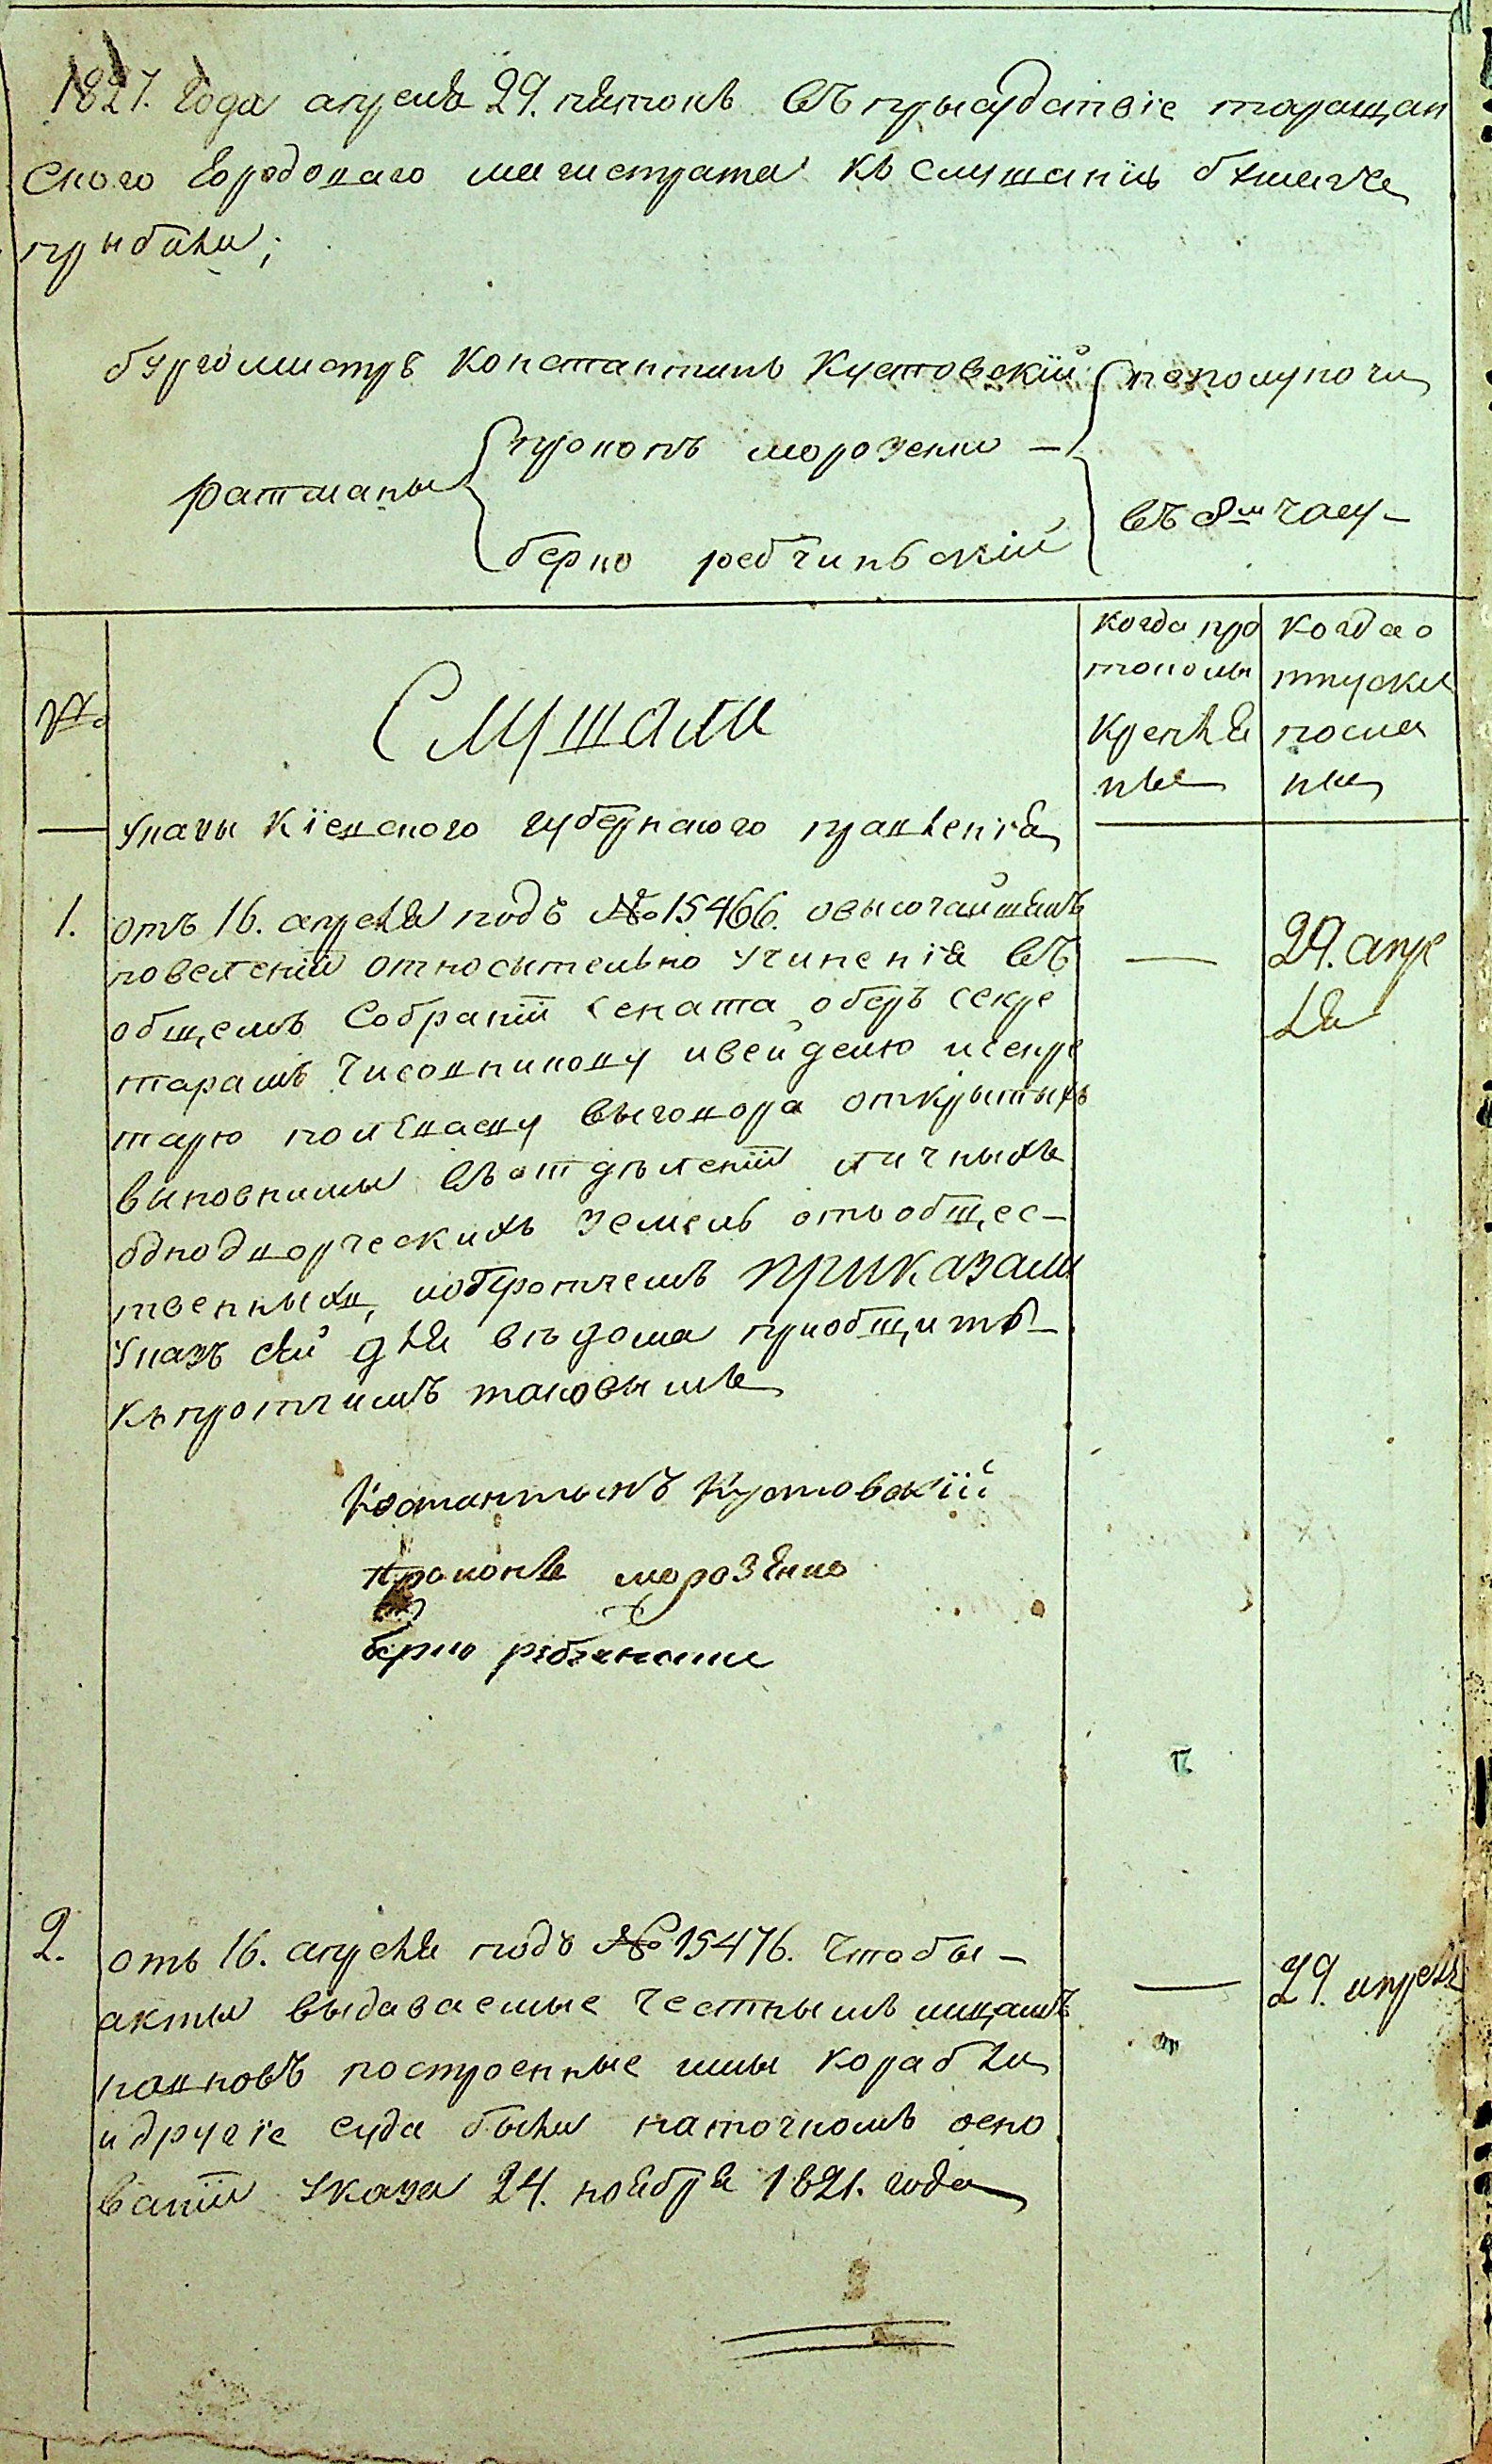 1827. Года апреля 29. пятокъ въ прысудствіе таращан
ского Городоваго магистрата къ слушанію бумагъ
прыбыли;
бургомистръ Константинъ Кустовскій
пополуночи
ратманы
прокопъ морозенко —
берко ребчиньскій
въ 8м часу —
№
Слушали
когда про
токолы
крепле
ны
когда о
тпуски
посла
ны
— Указы Кіевского губернского правленія
1. отъ 16. апреля подъ № 15466. овысочайшемъ
повеленіи относытельно учиненія въ
общемъ Собраніи Сената оберъ секре
тарамъ Чисовникову ивейделю исекре
тарю
выговора открытыхъ
виновными въ отдѣленіи личныхъ
однодворческихъ земель отъобщес —
твенныхъ, ипротчемъ ПРИКАЗАЛИ
Указъ сей для вѣдома приобщить —
къпротчимъ таковымъ
— 29. апре
ля
Костантынъ Кустовскій
Прокопъ морозенко
берко
2. отъ 16. апреля подъ № 15476. Чтобы —
акты выдаваемые Честнымъ лицамъ
навновъ построенные имы корабли
и другіе суда были наточномъ осно
ваніи Указа 24. ноября 1821. года
— 29. апреля